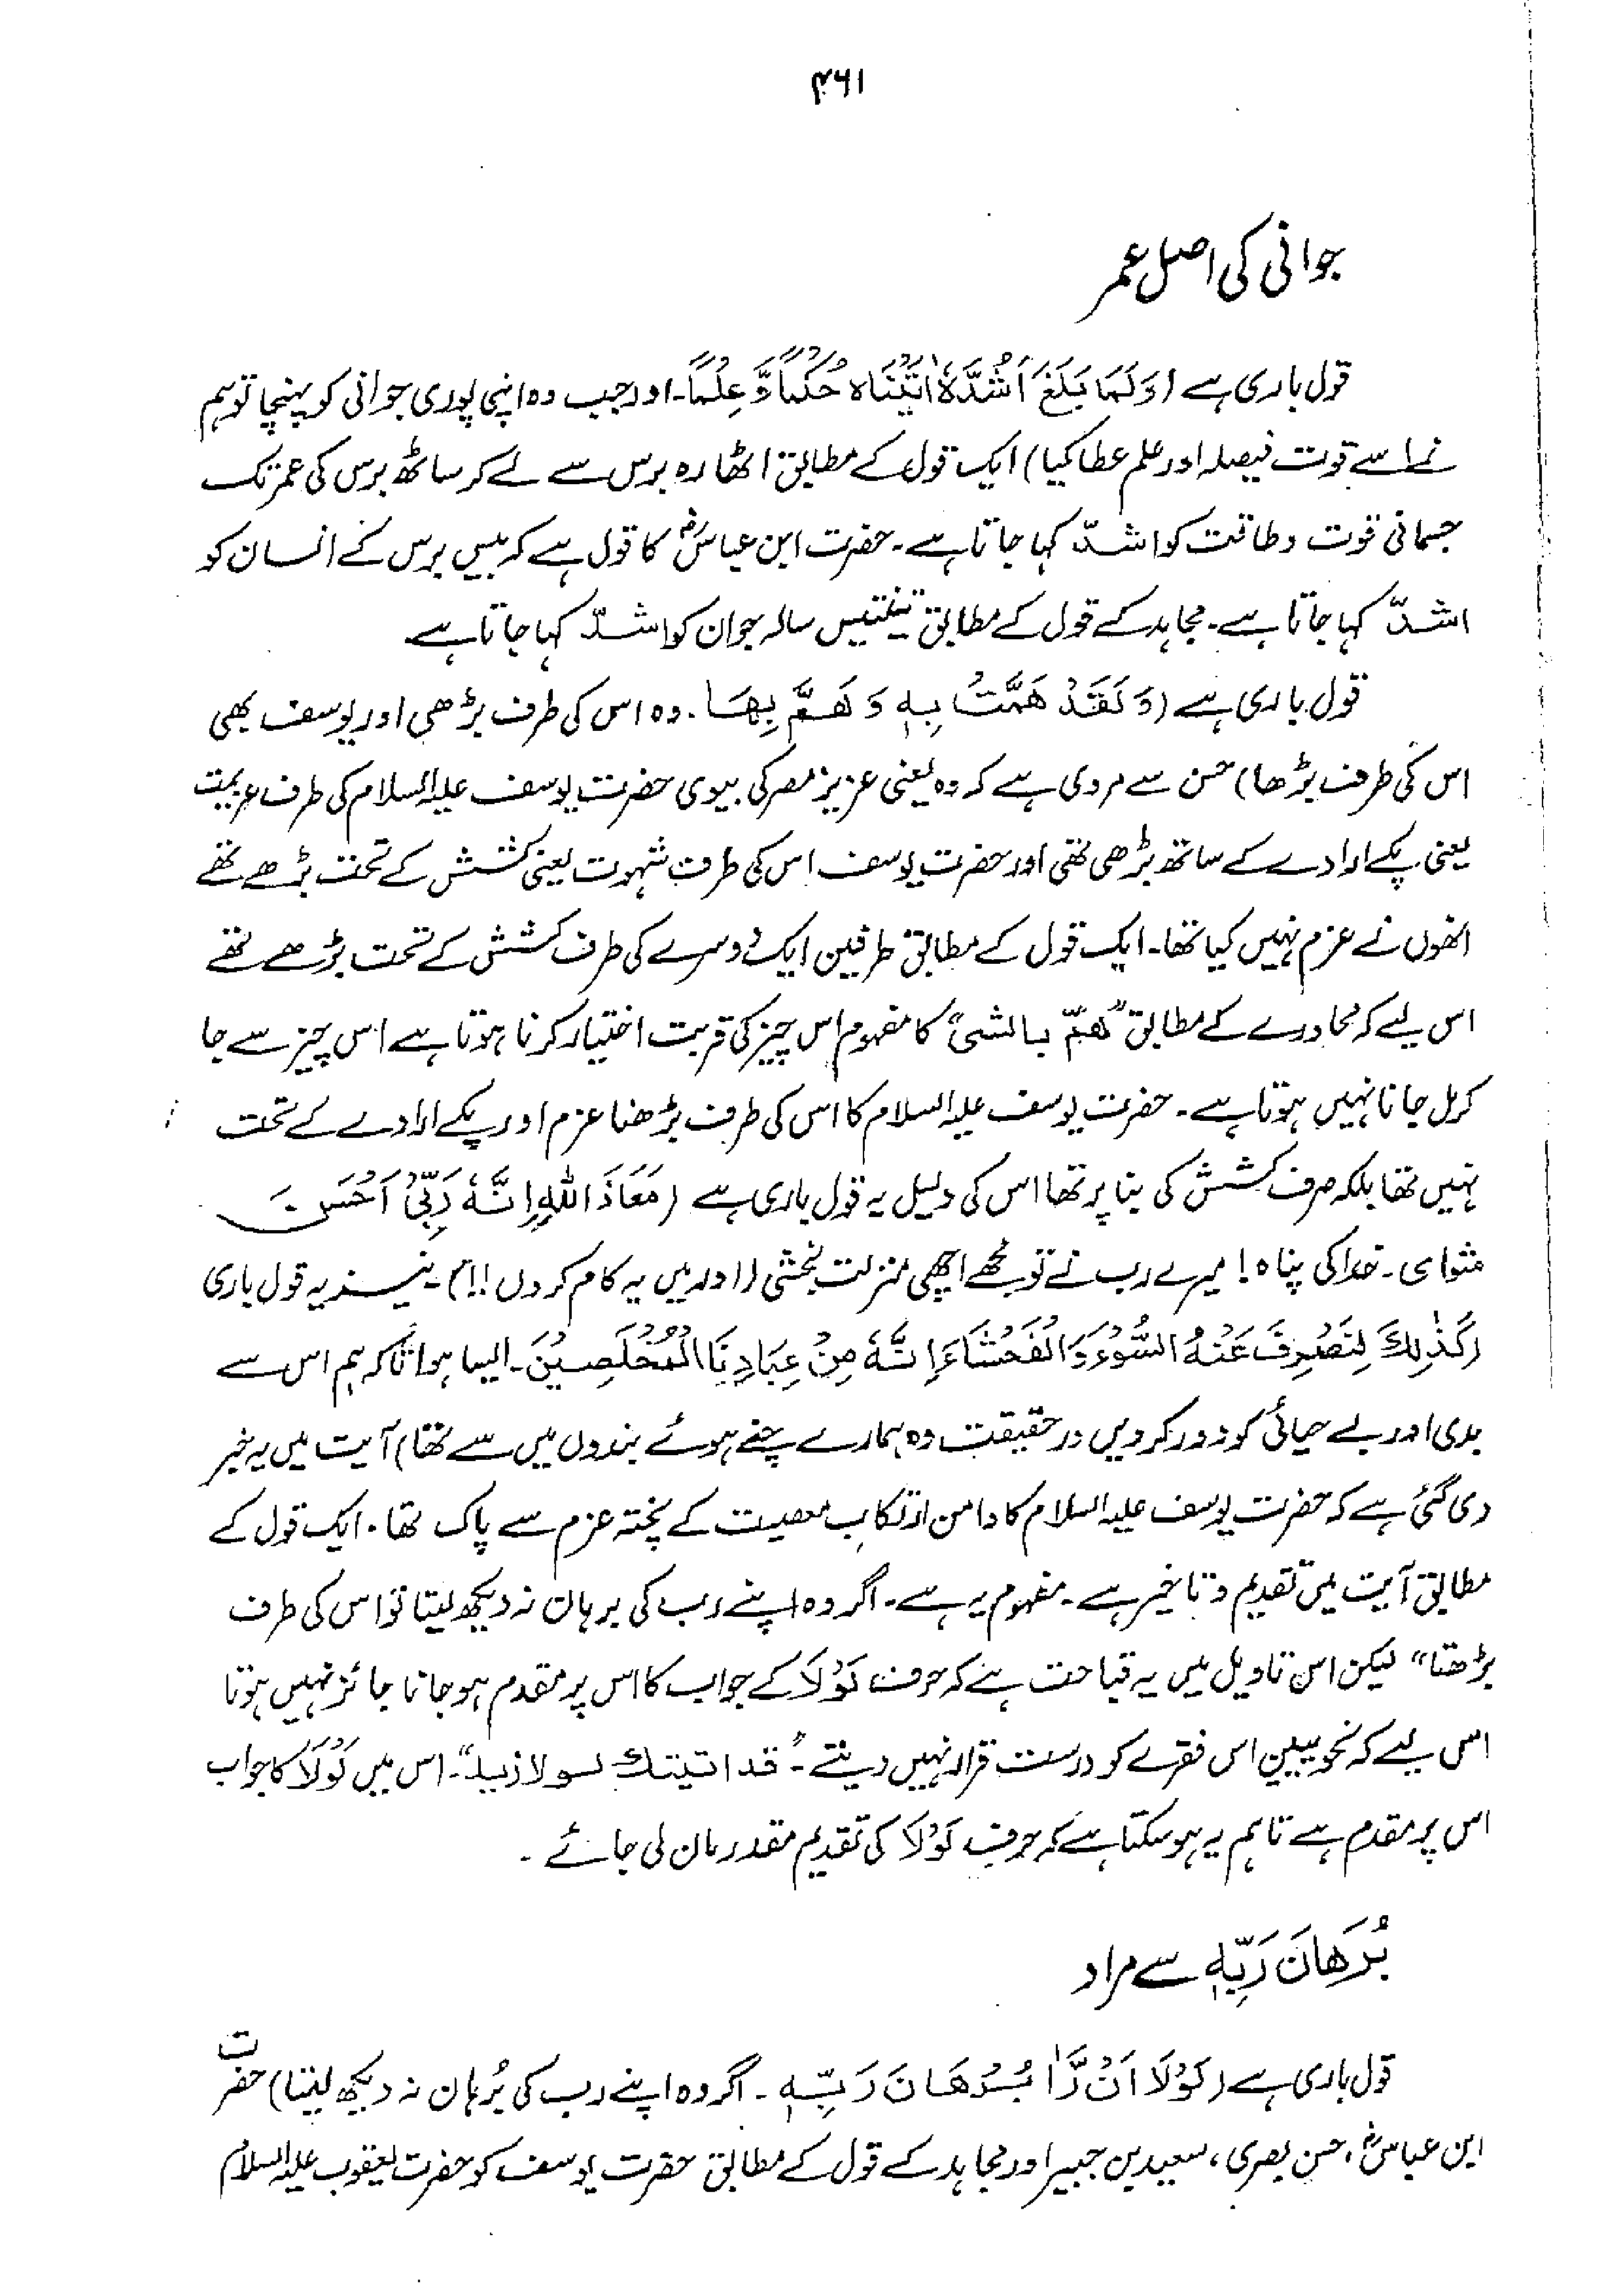 ۴۶۱
جوانی کی اصل عمر
قول باری ہے (وَلَمَّا بَلَغَ اَشُدَّہٗ اٰتَیْنَاہ حُکْمًا وَّ عِلْمًا۔ اور جب وہ اپنی پوری جوانی کو پہنچا تو ہم
نے اسے قوت فیصلہ اور علم عطا کیا) ایک قول کے مطابق اٹھارہ برس سے لے کر ساٹھ برس کی عمر تک
جسمانی قوت و طاقت کو اشدّ کہا جاتا ہے۔ حضرت ابن عباسؓ کا قول ہے کہ بیس برس کے انسان کو
اشدّ کہا جاتا ہے۔ مجاہد کے قول کے مطابق تینتیس سالہ جوان کو اشدّ کہا جاتا ہے۔
قول باری ہے (وَلَقَدْ ھَمَّتْ بِہٖ وَ ھَمَّ بِھَا۔ وہ اس کی طرف بڑھی اور یوسف بھی
اس کی طرف بڑھا) حسن سے مروی ہے کہ وہ یعنی عزیز مصر کی بیوی حضرت یوسف علیہ السلام کی طرف عزیمت
یعنی پکے ارادے کے ساتھ بڑھی تھی اور حضرت یوسف اس کی طرف شہوت یعنی کشش کے تحت بڑھے تھے
انھوں نے عزم نہیں کیا تھا۔ ایک قول کے مطابق طرفین ایک دوسرے کی طرف کشش کے تحت بڑھے تھے
اس لیے کہ محاورے کے مطابق "ھمّ بالشئ" کا مفہوم اس چیز کی قربت اختیار کرنا ہوتا ہے اس چیز سے جا
کر مل جانا نہیں ہوتا ہے۔ حضرت یوسف علیہ السلام کا اس کی طرف بڑھنا عزم اور پکے ارادے کے تحت
نہیں تھا بلکہ صرف کشش کی بنا پر تھا اس کی دلیل یہ قول باری ہے (مَعَاذَ اللّٰہِ اِنَّہٗ رَبِّیْ اَحْسَنَ
مثوای۔ خدا کی پناہ! میرے رب نے تو مجھے اچھی منزلت بخشی (اور میں یہ کام کروں!!)۔ نیز یہ قول باری
(کَذٰلِکَ لِنَصْرِفَ عَنْہُ السُّوْءَ وَالْفَحْشَاءَ اِنَّہٗ مِنْ عِبَادِنَا الْمُخْلَصِیْنَ۔ ایسا ہوا تاکہ ہم اس سے
بدی اور بے حیائی کو دور کر دیں درحقیقت وہ ہمارے چنے ہوئے بندوں میں سے تھا) آیت میں یہ خبر
دی گئی ہے کہ حضرت یوسف علیہ السلام کا دامن ارتکاب معصیت کے پختہ عزم سے پاک تھا۔ ایک قول کے
مطابق آیت میں تقدیم و تاخیر ہے۔ مفہوم یہ ہے۔ اگر وہ اپنے رب کی برہان نہ دیکھ لیتا تو اس کی طرف
بڑھتا" لیکن اس تاویل میں یہ قباحت ہے کہ حرف لَوْلَا کے جواب کا اس پر مقدم ہو جانا جائز نہیں ہوتا
اس لیے کہ نحویین اس فقرے کو درست قرار نہیں دیتے۔ "قد اتیتک لولا زید"۔ اس میں لَوْلَا کا جواب
اس پر مقدم ہے تاہم یہ ہو سکتا ہے کہ حرف لَوْلَا کی تقدیم مقدر مان لی جائے۔
بُرْھَانَ رَبِّہٖ سے مراد
قول باری ہے (لَوْلَا اَنْ رَّاٰ بُرْھَانَ رَبِّہٖ۔ اگر وہ اپنے رب کی بُرہان نہ دیکھ لیتا) حضرت
ابن عباسؓ، حسن بصری، سعید بن جبیر اور مجاہد کے قول کے مطابق حضرت یوسف کو حضرت یعقوب علیہ السلام